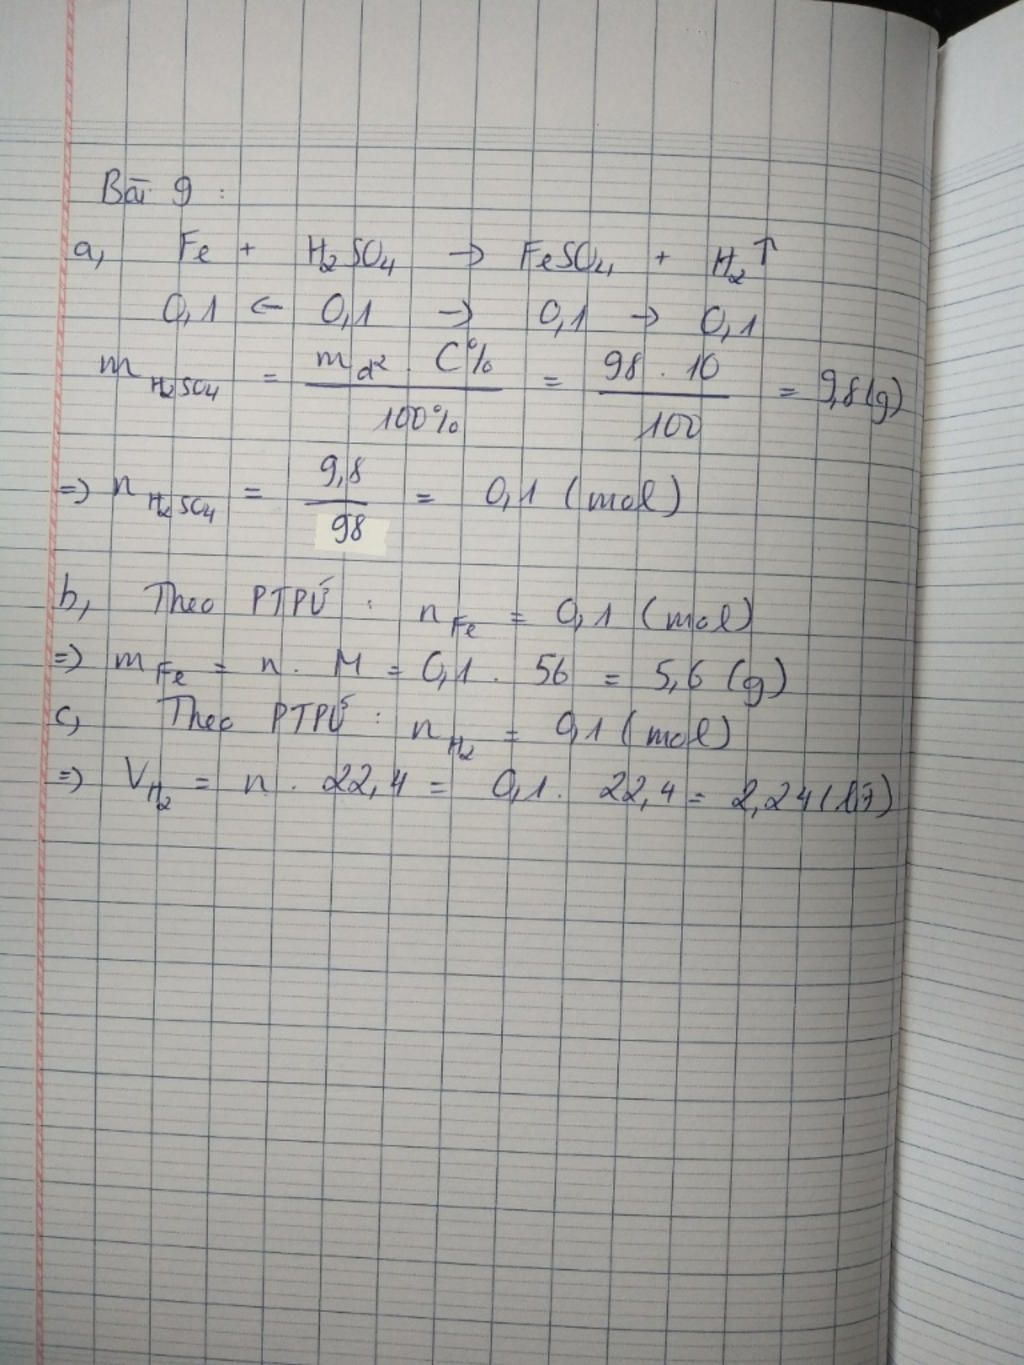 Bài 9 :
a, Fe + H₂SO₄ → FeSO₄ + H₂↑
0,1 ← 0,1 → 0,1 → 0,1
m H₂SO₄ = m d² . C% / 100% = 98 . 10 / 100 = 9,8 (g)
=) n H₂SO₄ = 9,8 / 98 = 0,1 (mol)
b, Theo PTPƯ : n Fe = 0,1 (mol)
=) m Fe = n . M = 0,1 . 56 = 5,6 (g)
c, Theo PTPƯ : n H₂ = 0,1 (mol)
=) V H₂ = n . 22,4 = 0,1 . 22,4 = 2,24 (lít)